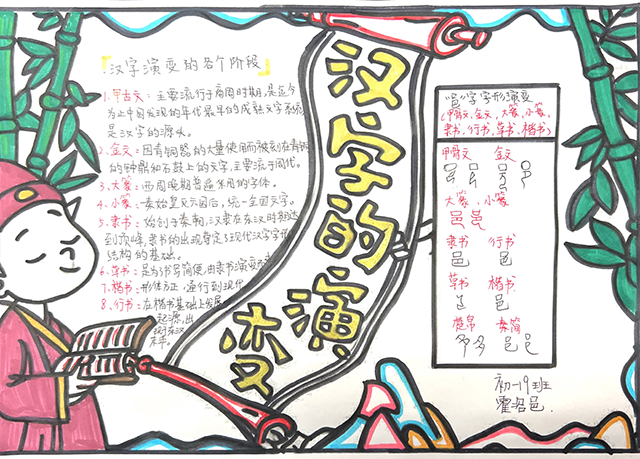 汉字演变的各个阶段
1、甲骨文：主要流行于商周时期，是迄今
为止中国发现的年代最早的成熟文字系统
是汉字的源头。
2、金文：因青铜器的大量使用而被刻在青铜
的钟鼎和石鼓上的文字，主要流于周代。
3、大篆：西周晚期普遍采用的字体。
4、小篆：秦始皇灭六国后，统一全国文字。
5、隶书：始创于秦朝，汉隶在东汉时期达
到顶峰，隶书的出现奠定了现代汉字字形
结构的基础。
6、草书：是为书写简便，由隶书演变
7、楷书：形体方正，通行到现代
8、行书：在楷书基础上发展
起源，出
现于东汉
末年。
汉字的演变
"邑"字字形演变
(甲骨文、金文、大篆、小篆、
隶书、行书、草书、楷书)
甲骨文 金文
大篆、小篆
邑 邑
隶书 行书
邑 邑
草书 楷书
邑
楚帛 秦简
初一19班
霍洺邑